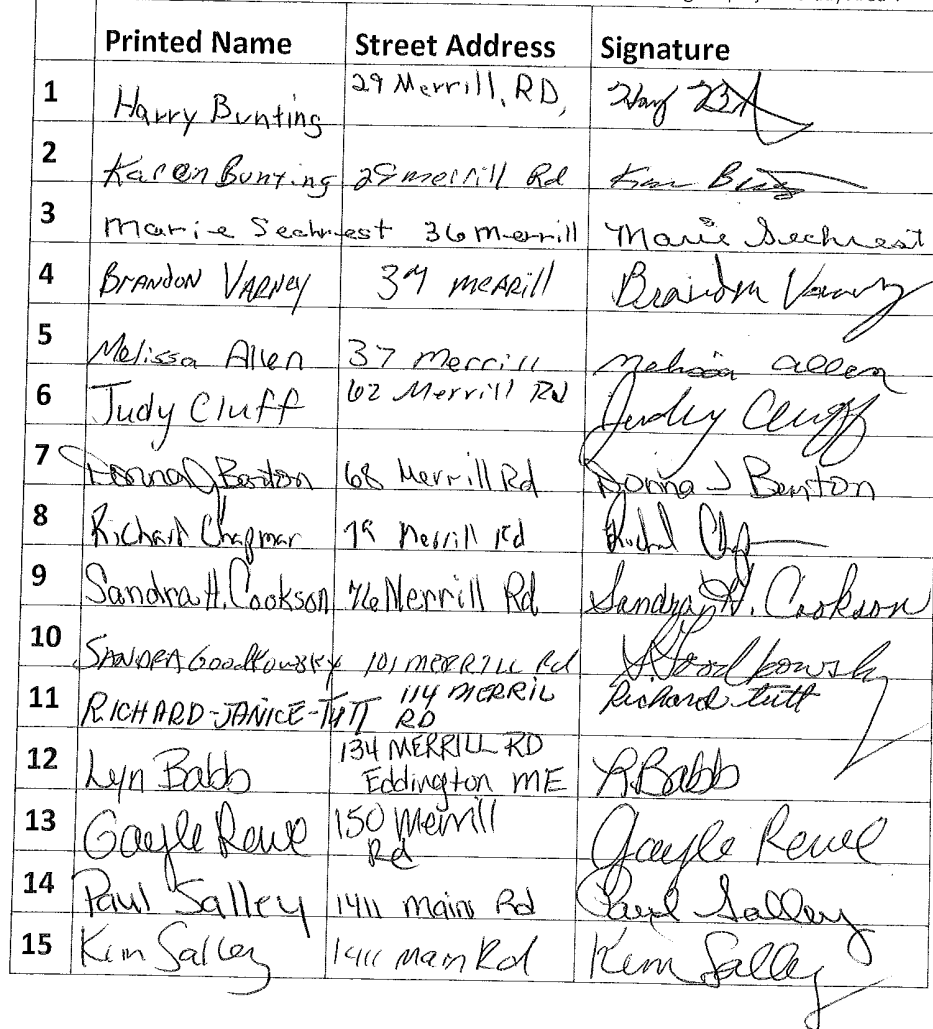 Printed Name Street Address Signature
1 Harry Bunting 29 Merrill, RD,
2 Karen Bunting 29 merrill Rd
3 Marie Sechrest 36 Merrill Marie Sechrest
4 BRANDON VARNEY 37 MERRILL Brandon Varney
5 Melissa Allen 37 Merrill Melissa Allen
6 Judy Cluff 62 Merrill Rd Judy Cluff
7 Donna J Benton 68 Merrill Rd Donna J Benton
8 Richard Chapman Merrill Rd
9 Sandra H. Cookson 76 Merrill Rd Sandra H. Cookson
10 SANDRA Goodkowsky 101 MERRILL Rd S. Goodkowsky
11 RICHARD-JANICE-TUTT 114 MERRIL
RD Richard tutt
12 Lyn Babb 134 MERRILL RD
Eddington ME R. Babb
13 Gayle Rowe 150 Merrill
Rd Gayle Rowe
14 Paul Salley 1411 Main Rd Paul Salley
15 Kim Salley 1411 Main Rd Kim Salley